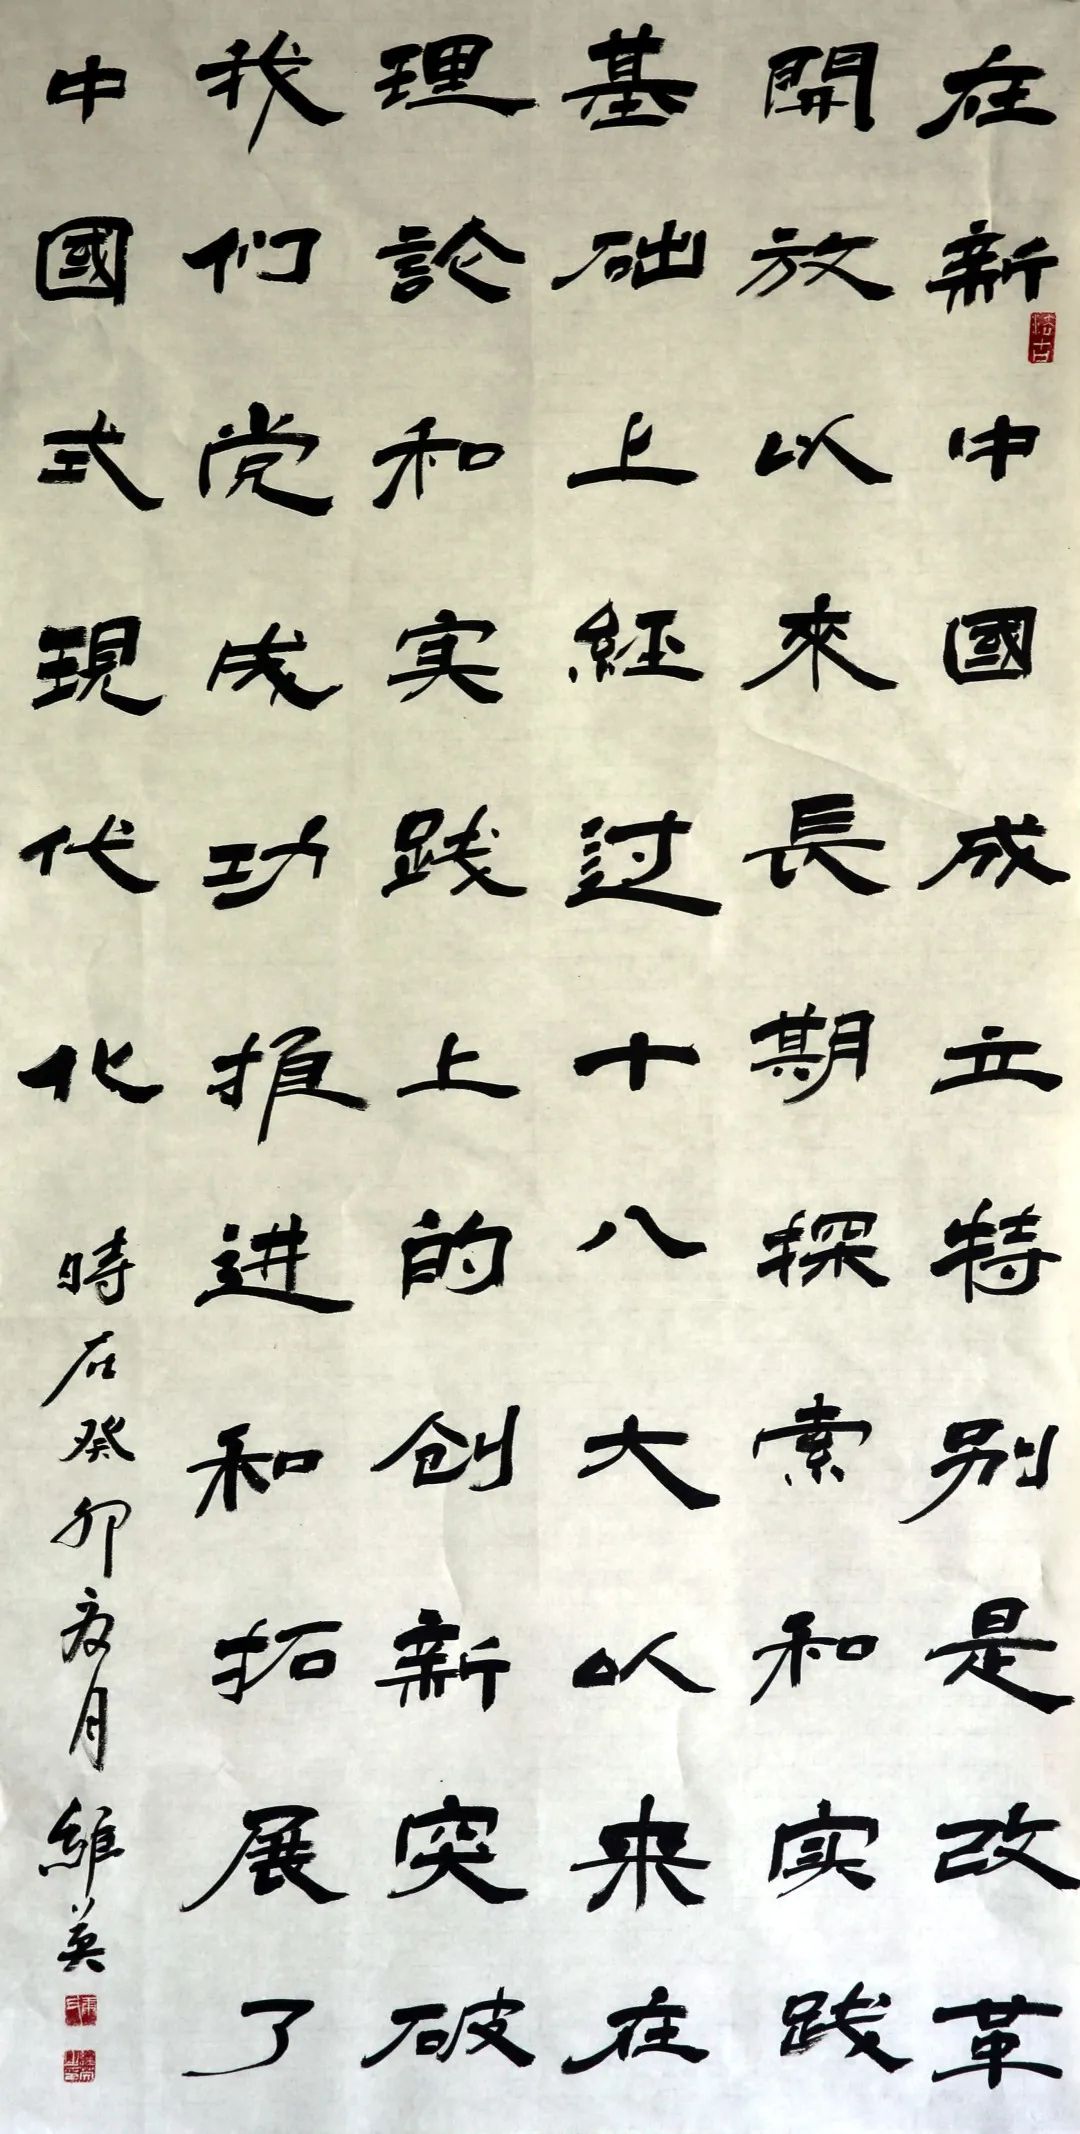 在新中國成立特别是改革
開放以來長期探索和实践
基础上經过十八大以来在
理論和实践上的创新突破
我们党成功推进和拓展了
中國式現代化
時在癸卯夏月維英